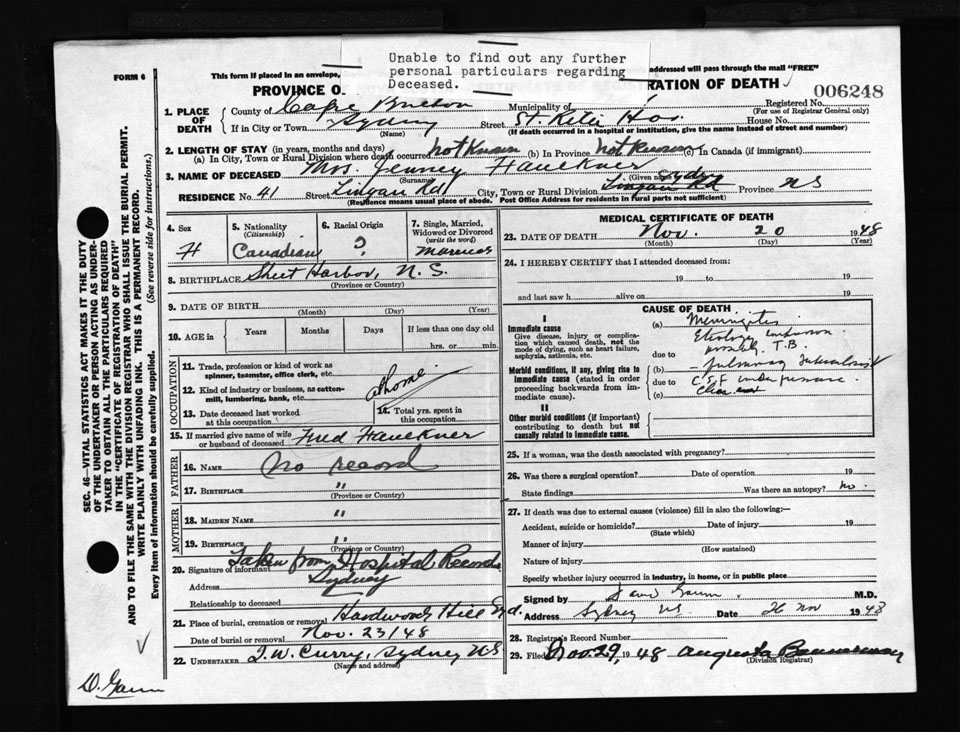 Unable to find out any further
personal particulars regarding
Deceased.
FORM 6
This form if placed in an envelope,
addressed will pass through the mail "FREE"
PROVINCE O
RATION OF DEATH
006248
1. PLACE OF DEATH
County of Cape Breton
Municipality of
Registered No.
(For use of Registrar General only)
If in City or Town Sydney
(Name)
Street St. Rita Hos.
House No.
(If death occurred in a hospital or institution, give the name instead of street and number)
2. LENGTH OF STAY (in years, months and days)
(a) In City, Town or Rural Division where death occurred not Known (b) In Province not Known (c) In Canada (if immigrant)
3. NAME OF DECEASED Mrs. Jenney Faulkner
(Surname) (Given
RESIDENCE No. 41 Street Lingan Rd City, Town or Rural Division Lingan Rd Province N S
(Residence means usual place of abode. Post Office Address for residents in rural parts not sufficient)
4. Sex
5. Nationality
(Citizenship)
Canadian
6. Racial Origin
?
7. Single, Married,
Widowed or Divorced
(write the word)
Married
8. BIRTHPLACE Sheet Harbor, N. S.
(Province or Country)
9. DATE OF BIRTH
(Month) (Day) (Year)
10. AGE in
Years Months Days If less than one day old
hrs. or min.
OCCUPATION
11. Trade, profession or kind of work as
spinner, teamster, office clerk, etc.
12. Kind of industry or business, as cotton-
mill, lumbering, bank, etc.
at home.
13. Date deceased last worked
at this occupation
14. Total yrs. spent in
this occupation
15. If married give name of wife
or husband of deceased Fred Faulkner
FATHER
16. NAME No record
17. BIRTHPLACE "
(Province or Country)
MOTHER
18. MAIDEN NAME "
19. BIRTHPLACE "
(Province or Country)
20. Signature of informant Taken from Hospital Records
Address Sydney
Relationship to deceased
21. Place of burial, cremation or removal Hardwood Hill Syd.
Date of burial or removal Nov. 23/48
22. UNDERTAKER T. W. Curry, Sydney N S
(Name and address)
MEDICAL CERTIFICATE OF DEATH
23. DATE OF DEATH Nov. 20 1948
(Month) (Day) (Year)
24. I HEREBY CERTIFY that I attended deceased from:
19 to 19
and last saw h alive on 19
CAUSE OF DEATH
I
Immediate cause
Give disease, injury or complica-
tion which caused death, not the
mode of dying, such as heart failure,
asphyxia, asthenia, etc.
(a) Meningitis
Etiology unknown
possibly T.B.
due to
Morbid conditions, if any, giving rise to
immediate cause (stated in order
proceeding backwards from im-
mediate cause).
(b) - pulmonary tuberculosis
due to C.S.F under pressure.
(c)
II
Other morbid conditions (if important)
contributing to death but not
causally related to immediate cause.
25. If a woman, was the death associated with pregnancy?
26. Was there a surgical operation? Date of operation 19
State findings Was there an autopsy? no.
27. If death was due to external causes (violence) fill in also the following:—
Accident, suicide or homicide? Date of injury 19
(State which)
Manner of injury
(How sustained)
Nature of injury
Specify whether injured in industry, in home, or in public place
Signed by M.D.
Address Sydney NS Date 26 Nov 1948
28. Registrar's Record Number
29. Filed Nov. 29 1948 Augusta
(Division Registrar)
SEC. 46—VITAL STATISTICS ACT MAKES IT THE DUTY
OF THE UNDERTAKER OR PERSON ACTING AS UNDER-
TAKER TO OBTAIN ALL THE PARTICULARS REQUIRED
IN THE "CERTIFICATE OF REGISTRATION OF DEATH"
AND TO FILE THE SAME WITH THE DIVISION REGISTRAR WHO SHALL ISSUE THE BURIAL PERMIT.
WRITE PLAINLY WITH UNFADING INK. THIS IS A PERMANENT RECORD.
Every item of information should be carefully supplied. (See reverse side for instructions.)